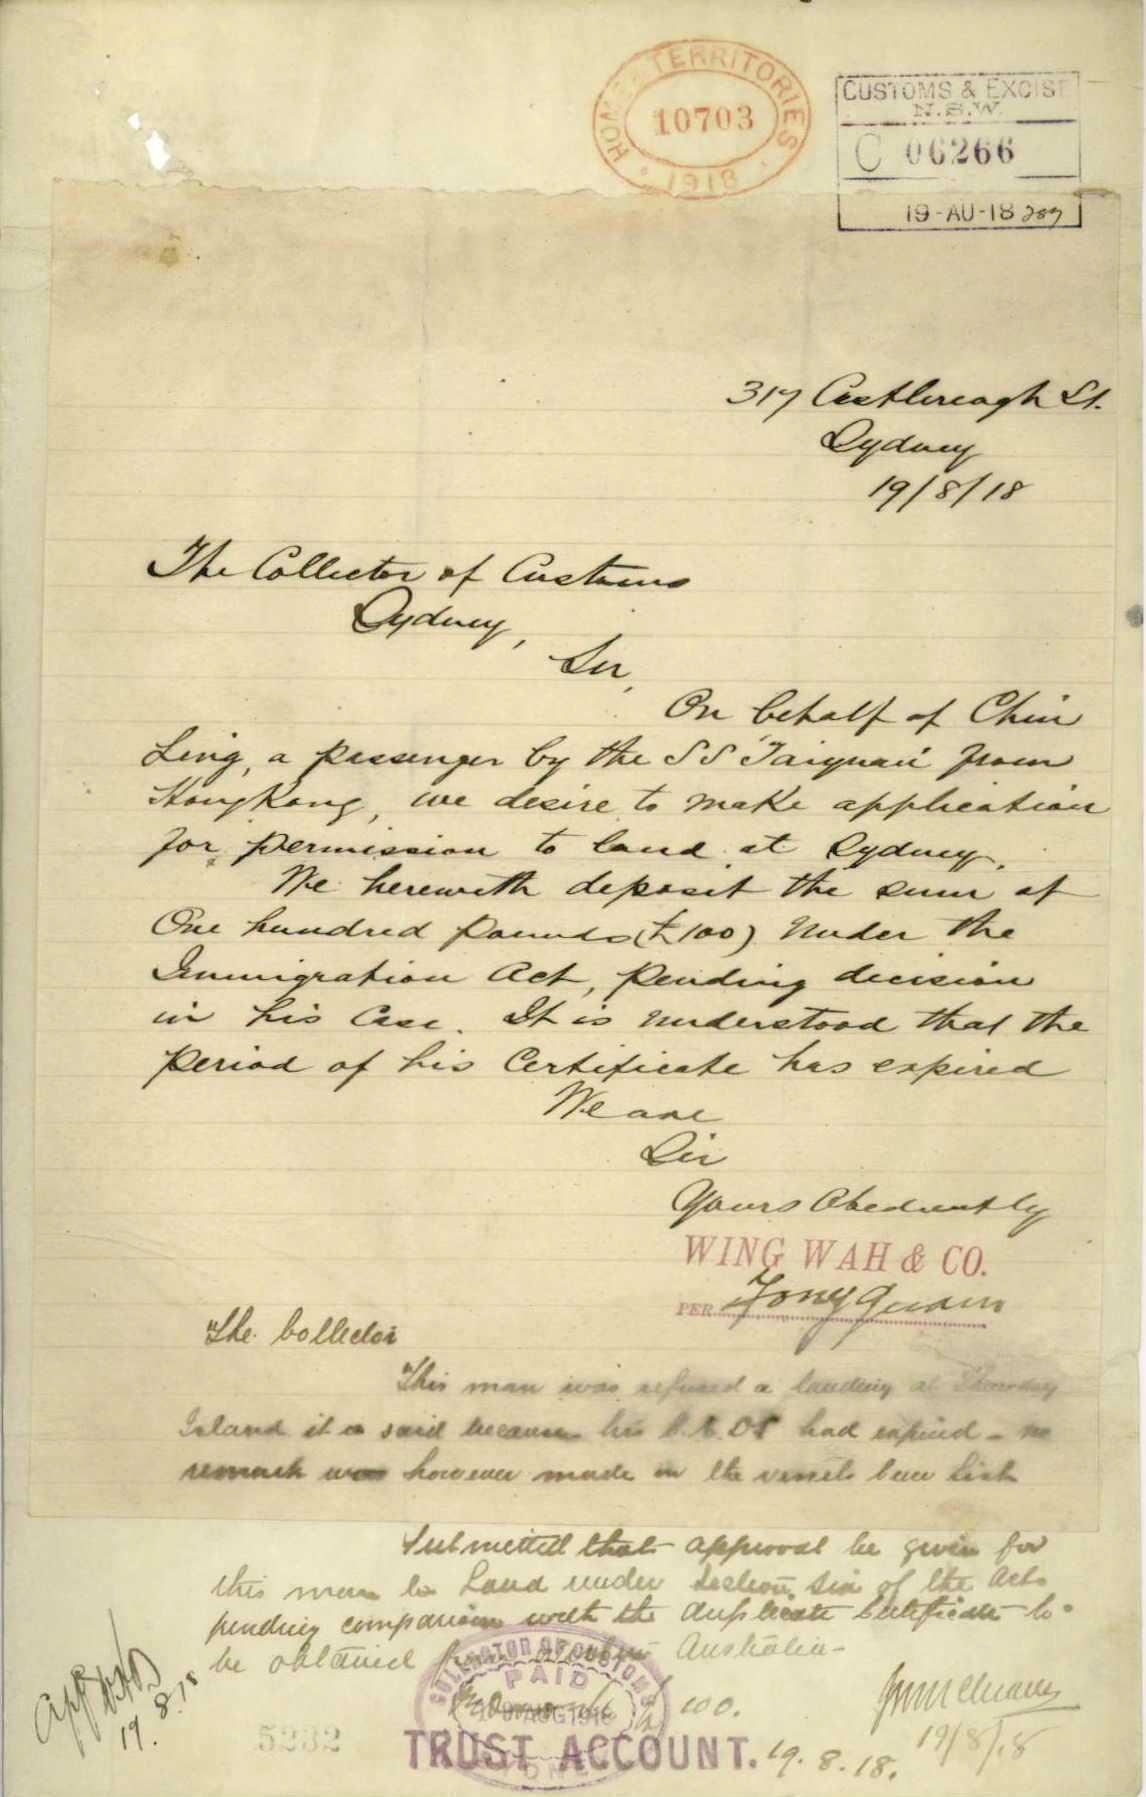 HOME & TERRITORIES
10703
1918
CUSTOMS & EXCISE
N.S.W.
C 06266
19-AU-18
317 Castlereagh St.
Sydney
19/8/18
The Collector of Customs
Sydney,
Sir,
On behalf of Chin
Ling, a passenger by the SS "Taiyuan" from
HongKong, we desire to make application
for permission to land at Sydney.
We herewith deposit the sum of
One hundred Pounds (£100) Under the
Immigration Act, pending decision
in his Case. It is understood that the
period of his Certificate has expired
We are
Sir
Yours Obediently
WING WAH & CO.
PER
The Collector
This man was refused a landing at Thursday
Island it is said because his C.E.D.T. had expired - no
remark was however made in the vessels Crew List
Submitted that approval be given for
this man to Land under Section Six of the Act
pending comparison with the duplicate Certificate to
be obtained from Australia -
COLLECTOR OF CUSTOMS
PAID
19 AUG 1918
SYDNEY
100.
TRUST ACCOUNT.
19.8.18.
19/8/18
5232
19.8.18